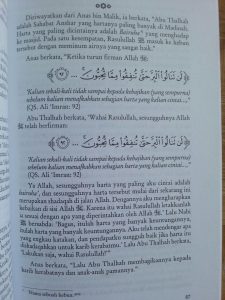 Diriwayatkan dari Anas bin Malik, ia berkata, "Abu Thalhah
adalah Sahabat Anshar yang hartanya paling banyak di Madinah.
Harta yang paling dicintainya adalah Bairuha' yang menghadap
ke masjid. Pada satu kesempatan, Rasulullah ﷺ masuk ke kebun
tersebut dengan meminum airnya yang sangat baik."
Anas berkata, "Ketika turun firman Allah
لَنْ تَنَالُوا الْبِرَّ حَتَّىٰ تُنْفِقُوا مِمَّا تُحِبُّونَ ۝٩٢
'Kalian sekali-kali tidak sampai kepada kebajikan (yang sempurna)
sebelum kalian menafkahkan sebagian harta yang kalian cintai...,'
(QS. Ali 'Imran: 92)
Abu Thalhah berkata, 'Wahai Rasulullah, sesungguhnya Allah
telah berfirman:
لَنْ تَنَالُوا الْبِرَّ حَتَّىٰ تُنْفِقُوا مِمَّا تُحِبُّونَ ۝٩٢
"Kalian sekali-kali tidak sampai kepada kebajikan (yang sempurna)
sebelum kalian menafkahkan sebagian harta yang kalian cintai...,"
(QS. Ali 'Imran: 92)
Ya Allah, sesungguhnya harta yang paling aku cintai adalah
bairuha', dan sesungguhnya harta tersebut mulai dari sekarang ini
merupakan shadaqah di jalan Allah. Dengannya aku mengharapkan
kebaikan di sisi Allah. Karena itu wahai Rasulullah letakkanlah
ia sesuai dengan apa yang diperintahkan oleh Allah ﷻ.' Lalu Nabi
ﷺ bersabda: 'Bagus, itulah harta yang banyak keuntungannya,
itulah harta yang banyak keuntungannya. Aku telah mendengar apa
yang engkau katakan, dan pendapatku sungguh baik jika harta itu
dishadaqahkan untuk karib kerabatmu.' Lalu Abu Thalhah berkata,
'Lakukan saja, wahai Rasulullah!'"
Anas berkata, "Lalu Abu Thalhah membagikannya kepada
karib kerabatnya dan anak-anak pamannya."
Nama sebuah kebun.
87